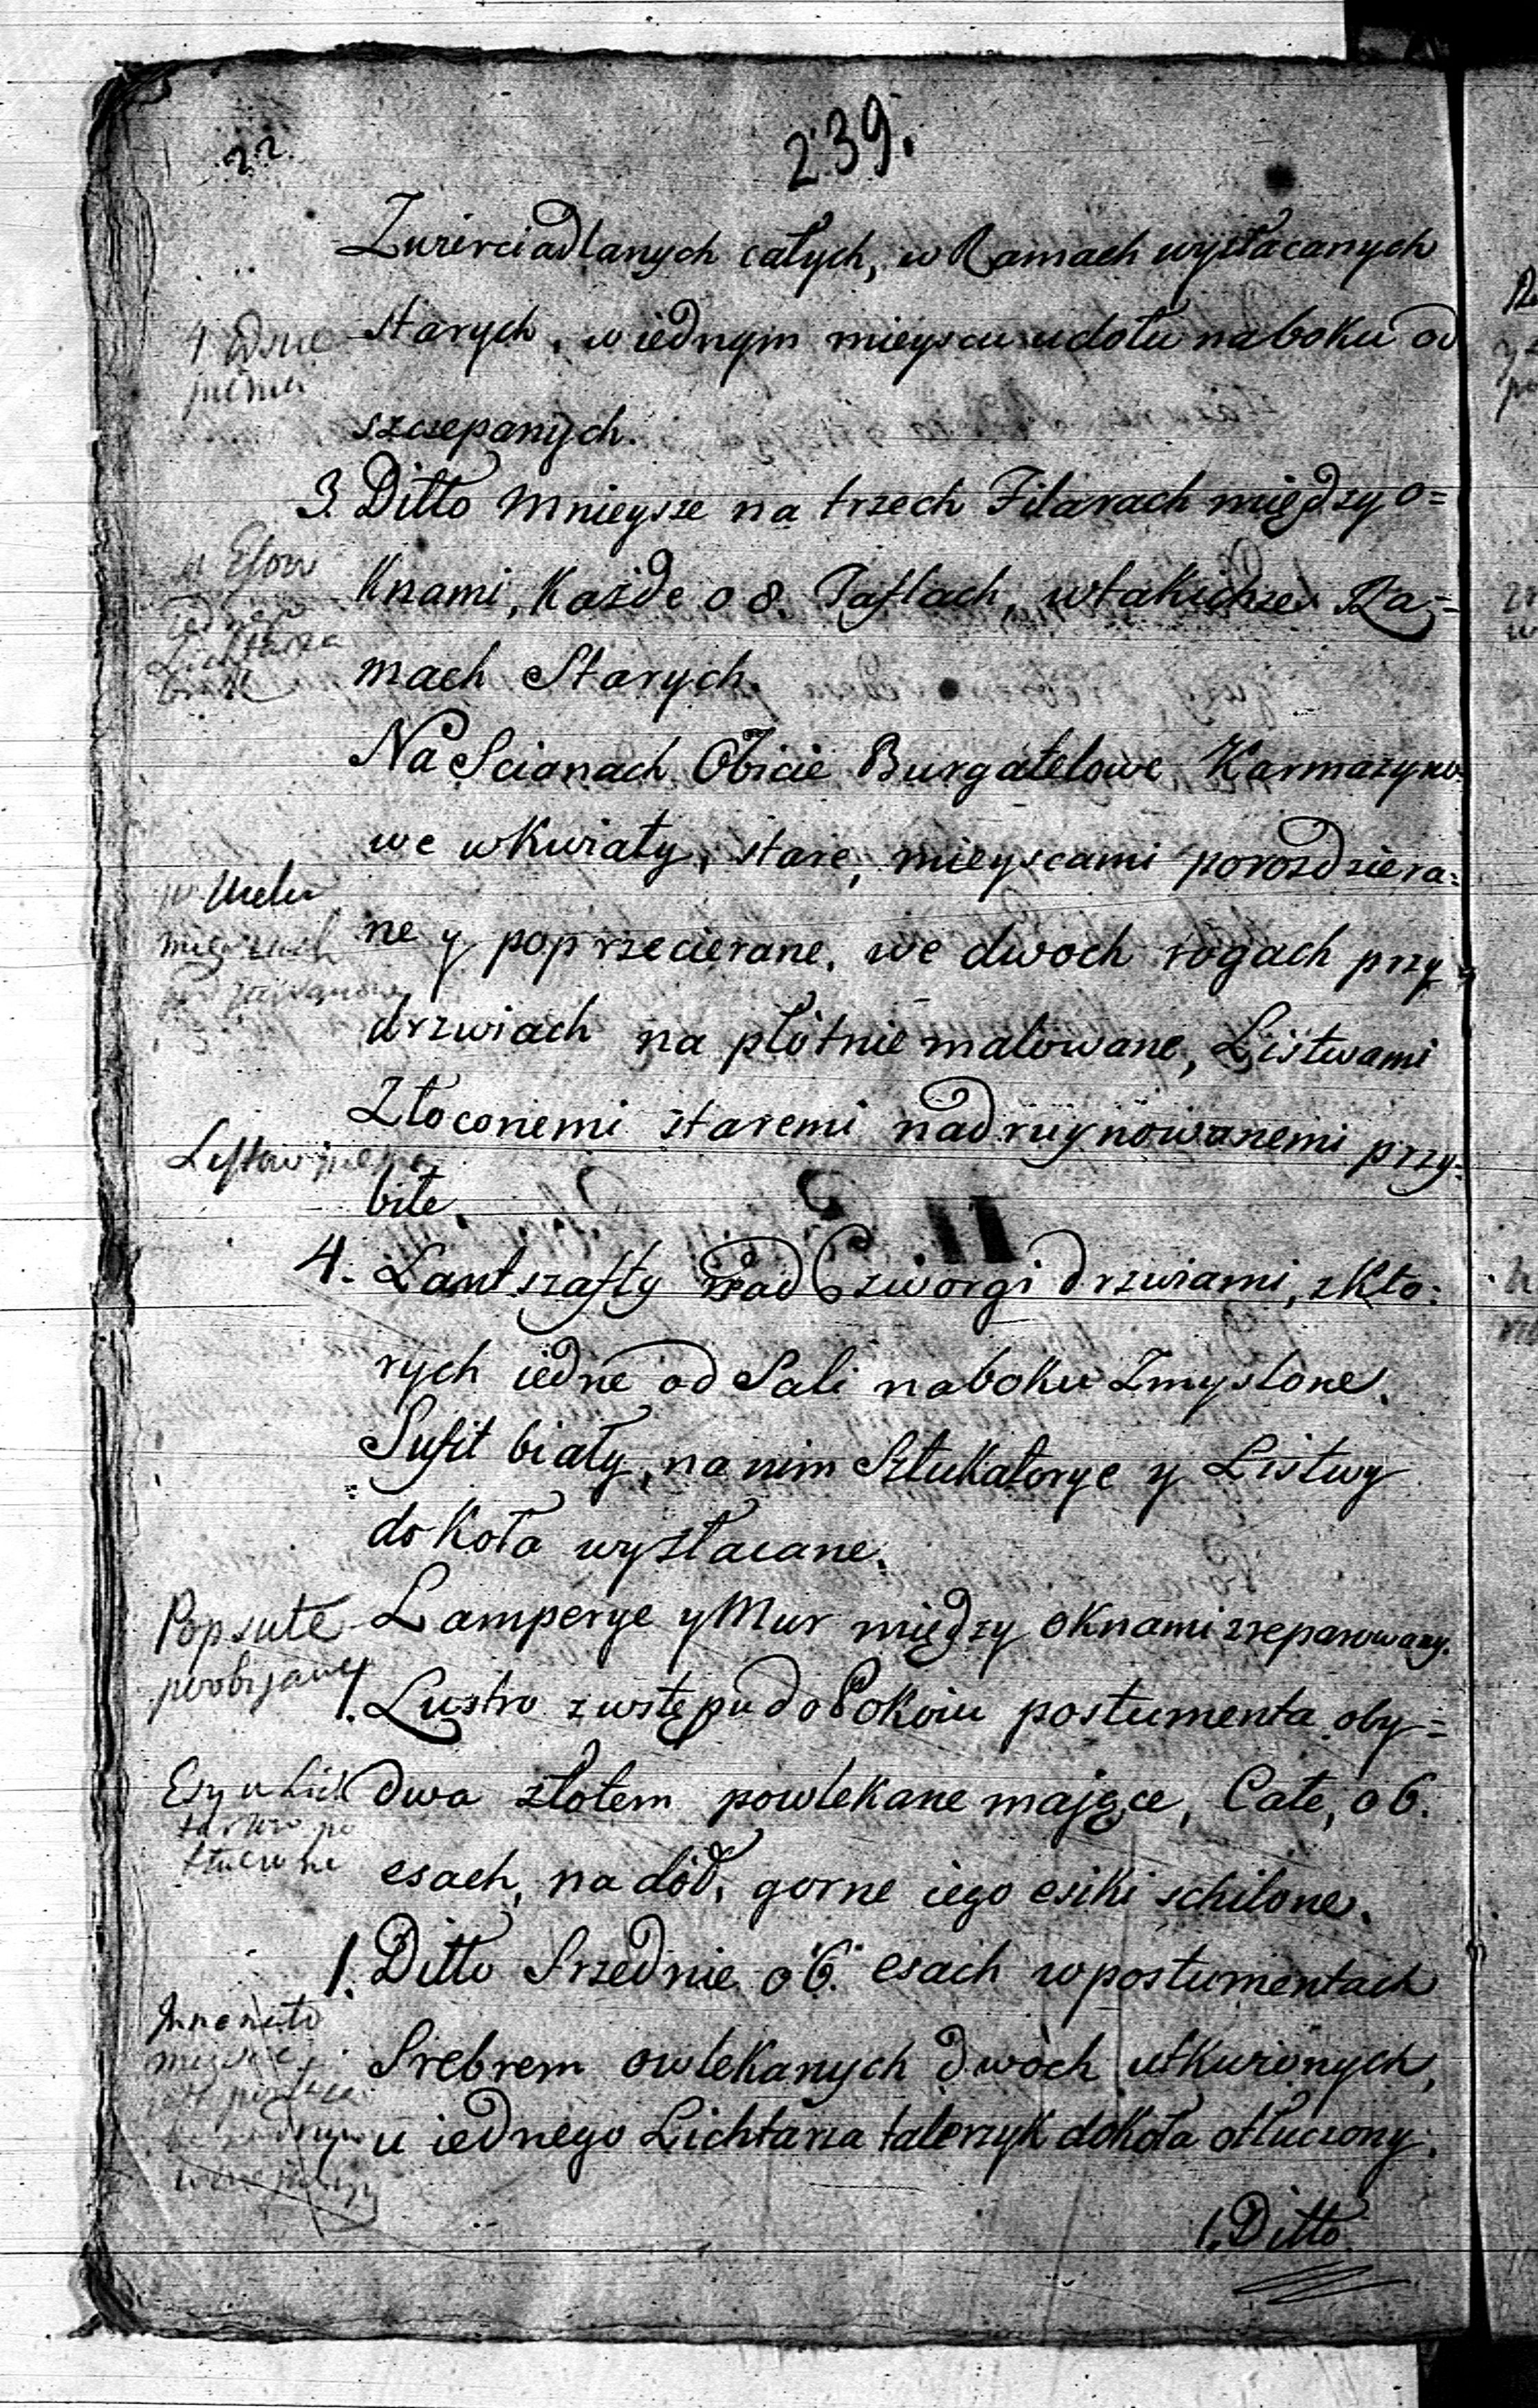 22.
239.
Zwierciadlanych całych, w Ramach wyzłacanych
starych, w iednym mieyscu udołu na boku od
szczepanych.
3. Ditto Mnieysze na trzech Filarach między o=
knami, Każde o 8. Taflach, w takichże Ra=
mach Starych.
u Esow
iednego
Lichtarza
brak
Na Scianach Obicie Burgatelowe Karmazyno
we w Kwiaty, stare, mieyscami porozdziera=
w wielu
mieyscach
ne y poprzecierane, we dwoch rogach przy
drzwiach na płótnie malowane, Listwami
Złoconemi staremi nadruynowanemi przy=
bite.
4. Lantszafty nad Czworgi drzwiami, z Kto=
rych iedne od Sali na boku Zmyslone.
Sufit biały, na nim Sztukatorye y Listwy
do Koła wyzłacane.
Popsute
poobijane
Lamperye y Mur między oknami zreparowany.
1. Lustro z wstępu do Pokoiu postumenta oby=
Esy u Lich
tarzow po
tłuczone
dwa złotem powlekane mające, Całe, o 6.
esach, na dół, gorne iego esiki schilone.
1. Ditto Srzednie o 6. esach w postumentach
Srebrem owlekanych dwòch utkwionych,
u iednego Lichtarza talerzyk dokoła otłuczony.
1. Ditto